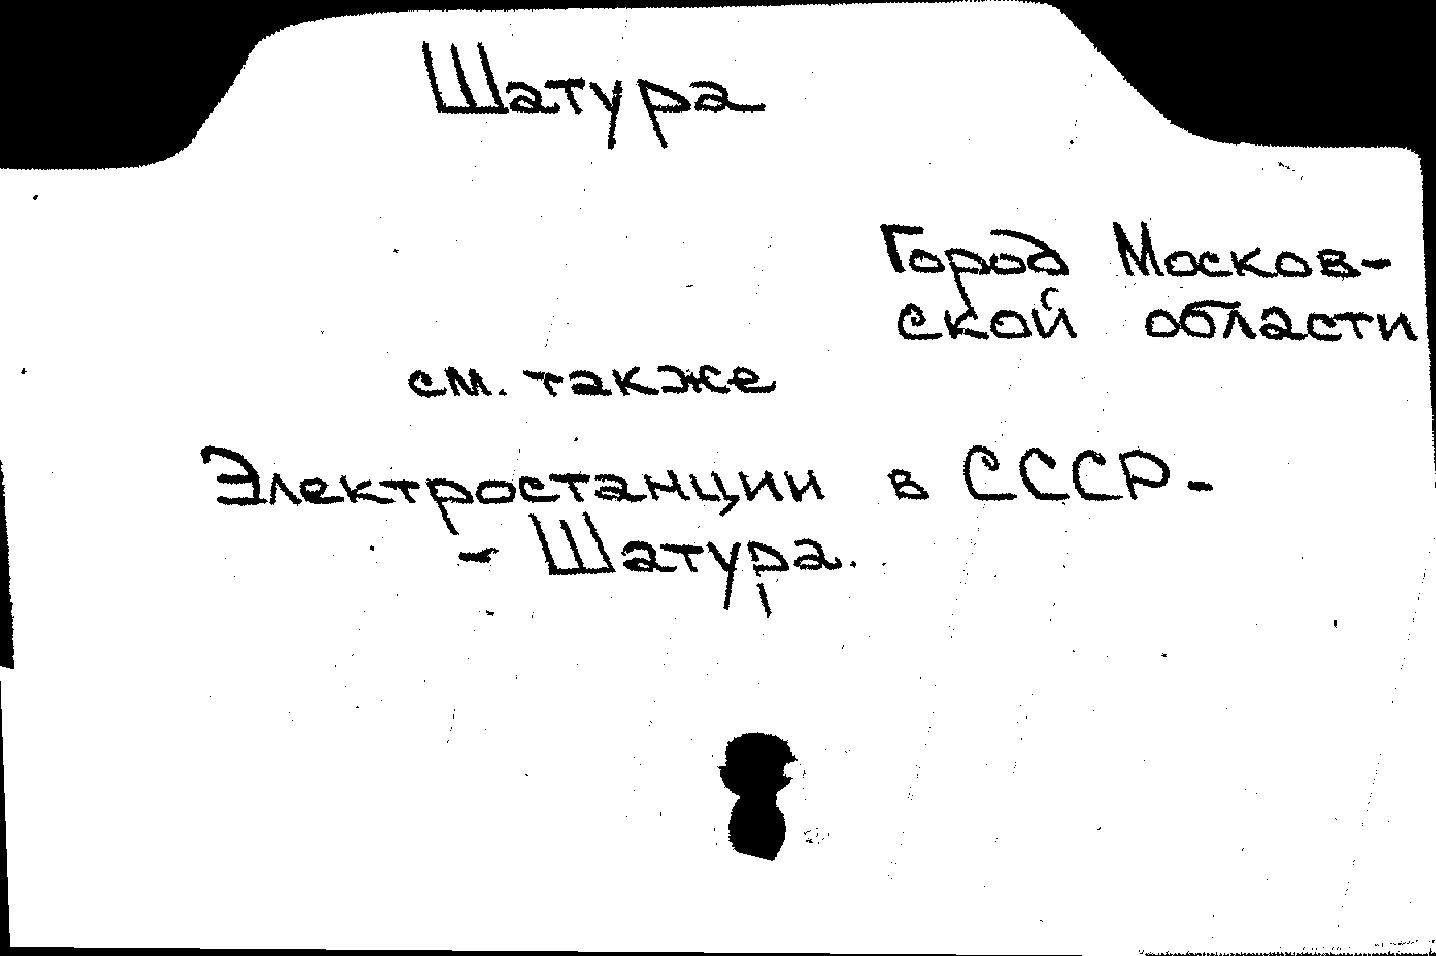 Шатура
Город Москов-
ской области
см. также
Электростанции в СССР -
- Шатура.